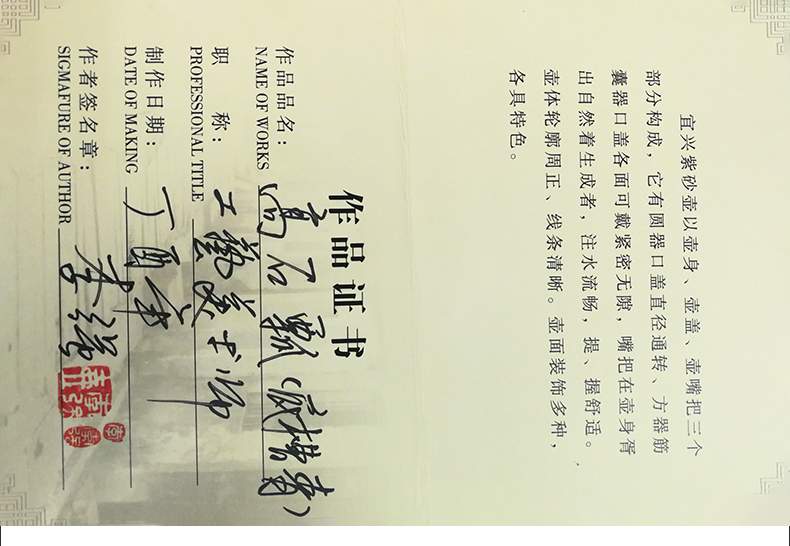 宜兴紫砂壶以壶身、壶盖、壶嘴把三个
部分构成，它有圆器口盖直径通转、方器筋
囊器口盖各面可戴紧密无隙，嘴把在壶身胥
出自然着生成者，注水流畅，提、握舒适。
壶体轮廓周正、线条清晰。壶面装饰多种，
各具特色。
作品证书
作品品名：高石瓢（底槽青）
NAME OF WORKS
职 称：工艺美术师
PROFESSIONAL TITLE
制作日期：丁酉年
DATE OF MAKING
作者签名章：李
SIGMAFURE OF AUTHOR